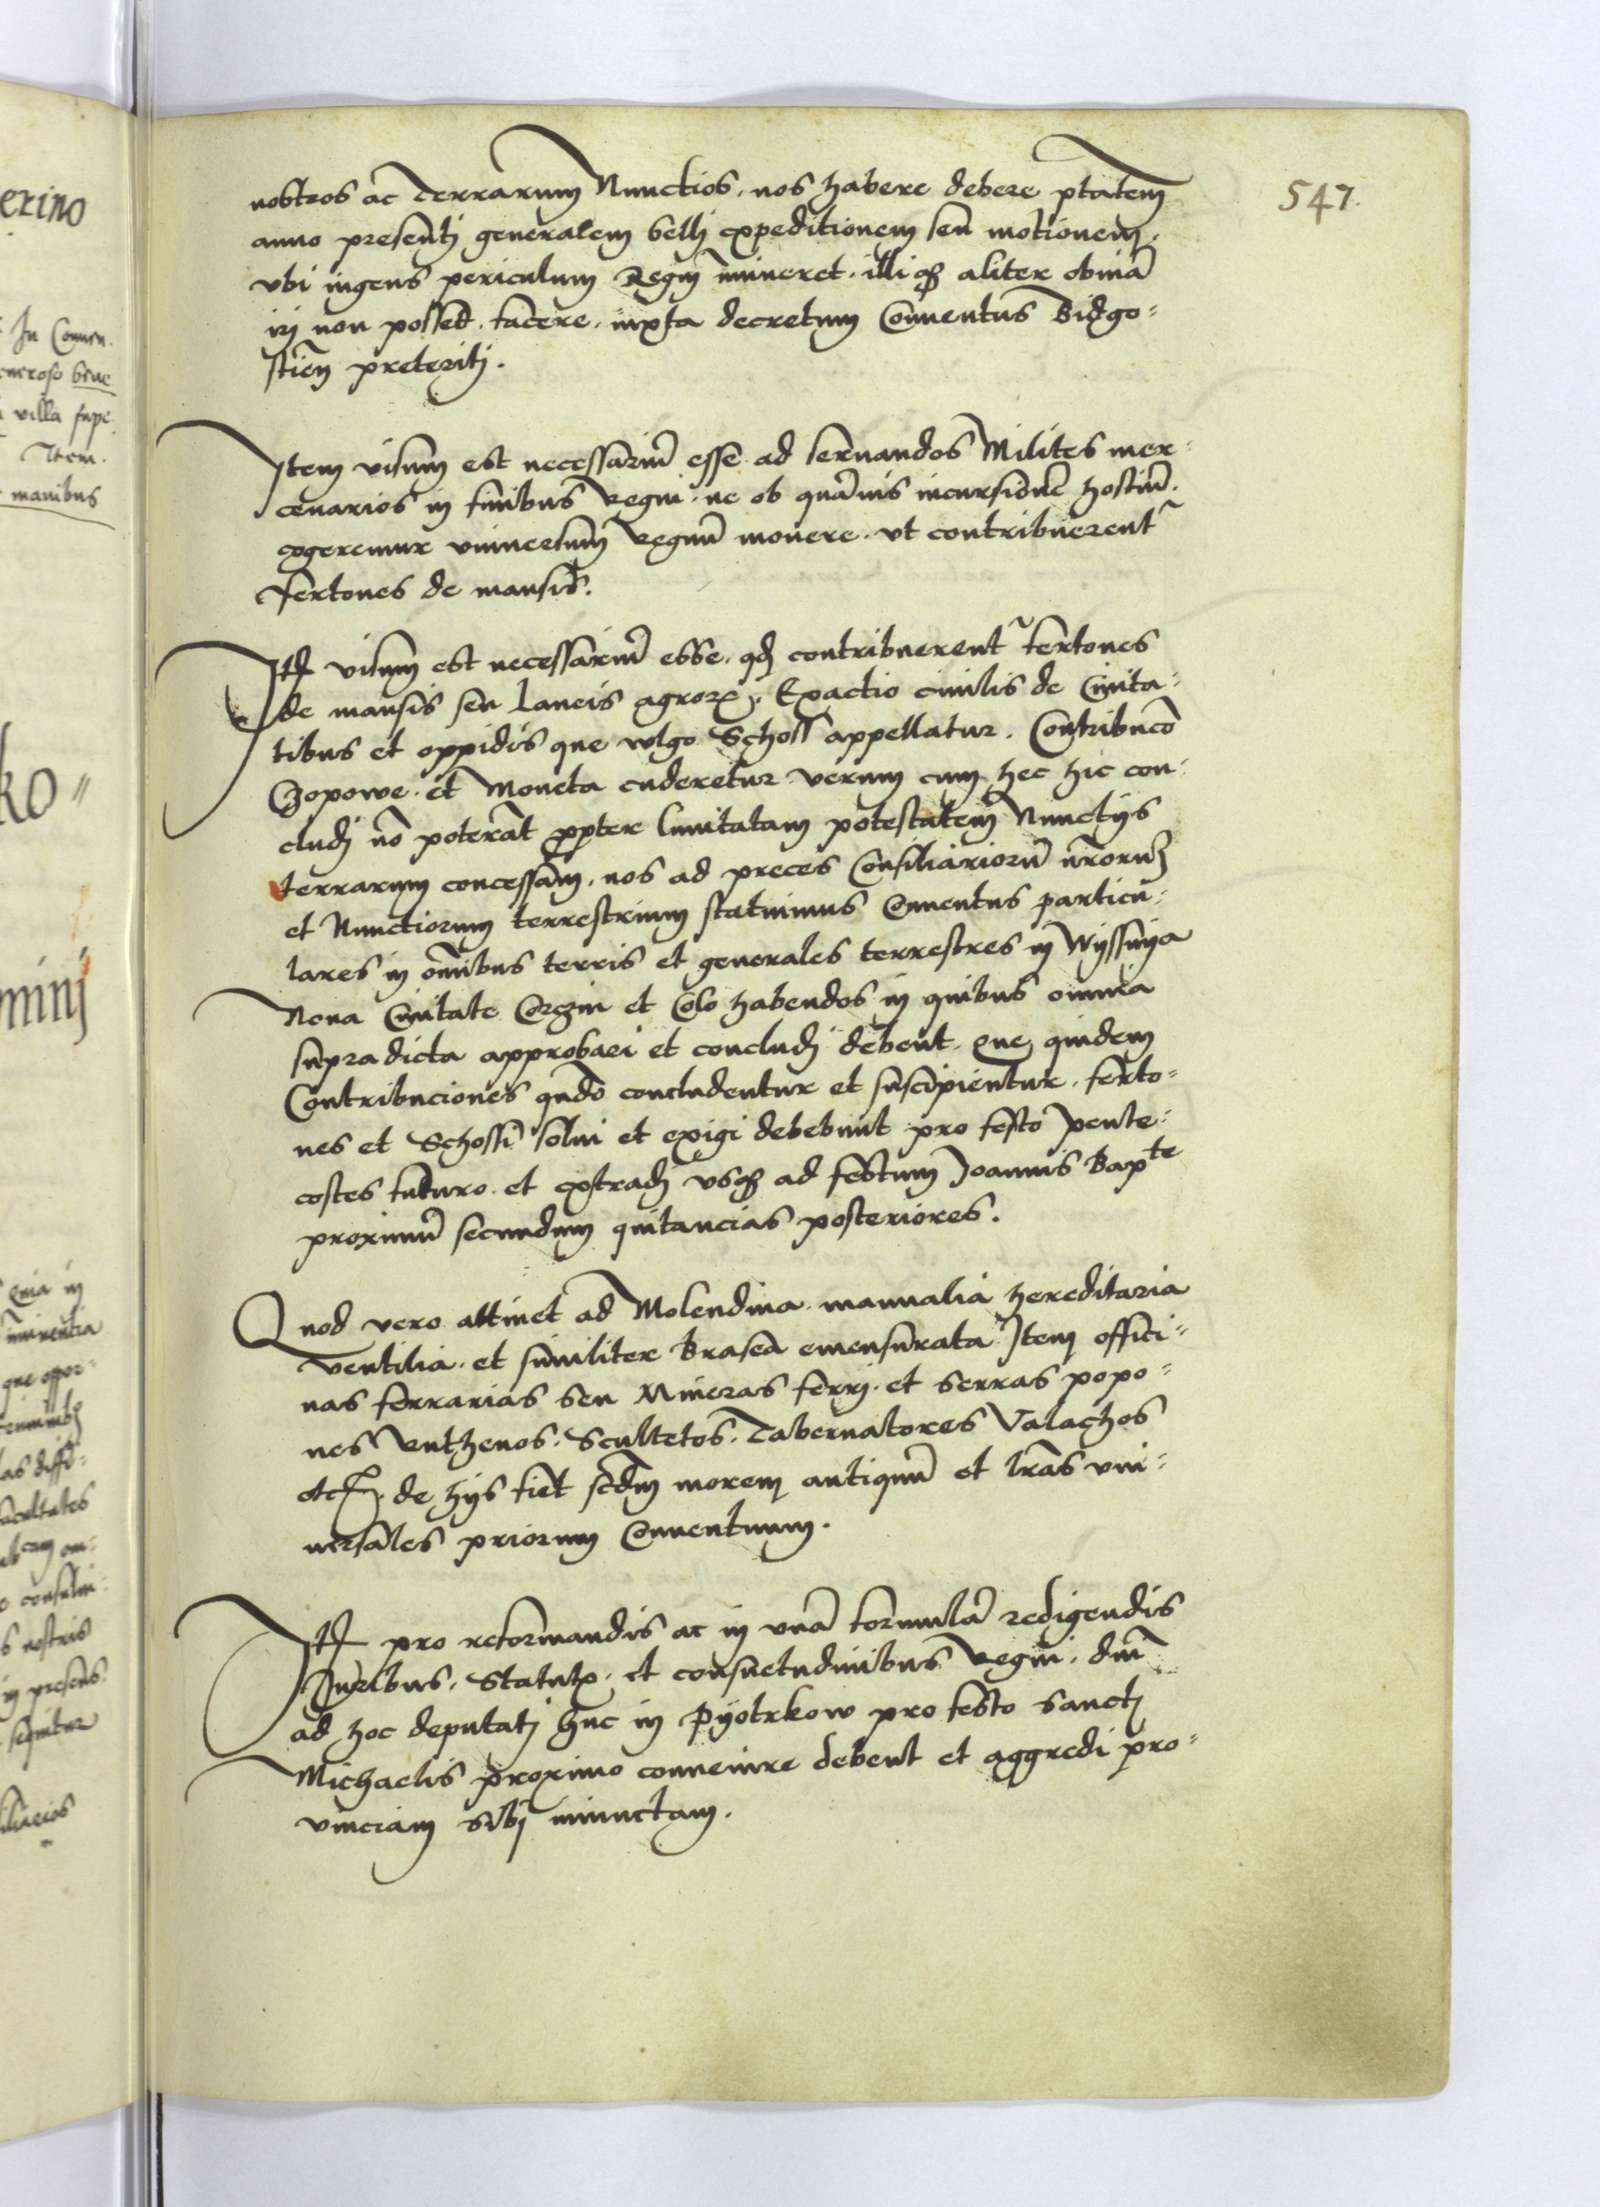 547.
nostros ac Terrarum Nunctios, nos habere debere ptatem
anno presentj generalem bellj expeditionem seu motionem,
vbi ingens periculum Regnj imineret. illiqȝ aliter obuiā
irj non posset. facere. iuxta decretum Conuentus Bidgo-
stien̄ preteritj.
Item visum est necessariū esse ad seruandos Milites mer-
cenarios in finibus Regni. ne ob quāuis incursionē hostiū.
cogeremur vniuersum Regnū mouere. vt contribuerentr
fertones de mansis.
Itē visum est necessariū esse. qd contribuerentr fertones
de mansis seu laneis agrorꝝ. Exactio ciuilis de Ciuita-
tibus et oppidis que wlgo Schoss appellatur. Contribucō
Czopowe. et Moneta cuderetur verum cum hec hic con-
cludj nō poterāt propter limitatam potestatem Nunctijs
terrarum concessam. nos ad preces Consiliariorū nrōrum
et Nunctiorum terrestrium statuimus Conuentus particu-
lares in om̄ibus terris et generales terrestres in Wyssnya
Noua Ciuitate Corczin et Colo habendos in quibus omnia
supradicta approbari et concludj debent. que quidem
Contribuciones qn̄do concludentur et suscipientur. ferto-
nes et Schossi solui et exigi debebunt pro festo pente-
costes futuro. et extradj vsqȝ ad festum Joannis Bapte
proximū secundum quitancias posteriores.
Quod vero attinet ad Molendina manualia hereditaria
ventilia. et similiter Brasea emensurata Item offici-
nas ferrarias seu Mineras ferrj. et serras popo-
nes Ruthenos. Scultetos. Tabernatores Valachos
etc. de hijs fiet scdm morem antiquū et lrās vni-
uersales priorum Conuentuum.
Itē pro reformandis ac in vnā formulā redigendis
Iuribus. Statutꝭ. et consuetudinibus Regni. dn̄i
ad hoc deputatj huc in Pyotrkow pro festo sanctj
Michaelis proximo conuenire debent et aggredi pro-
uinciam sibj iniunctam.